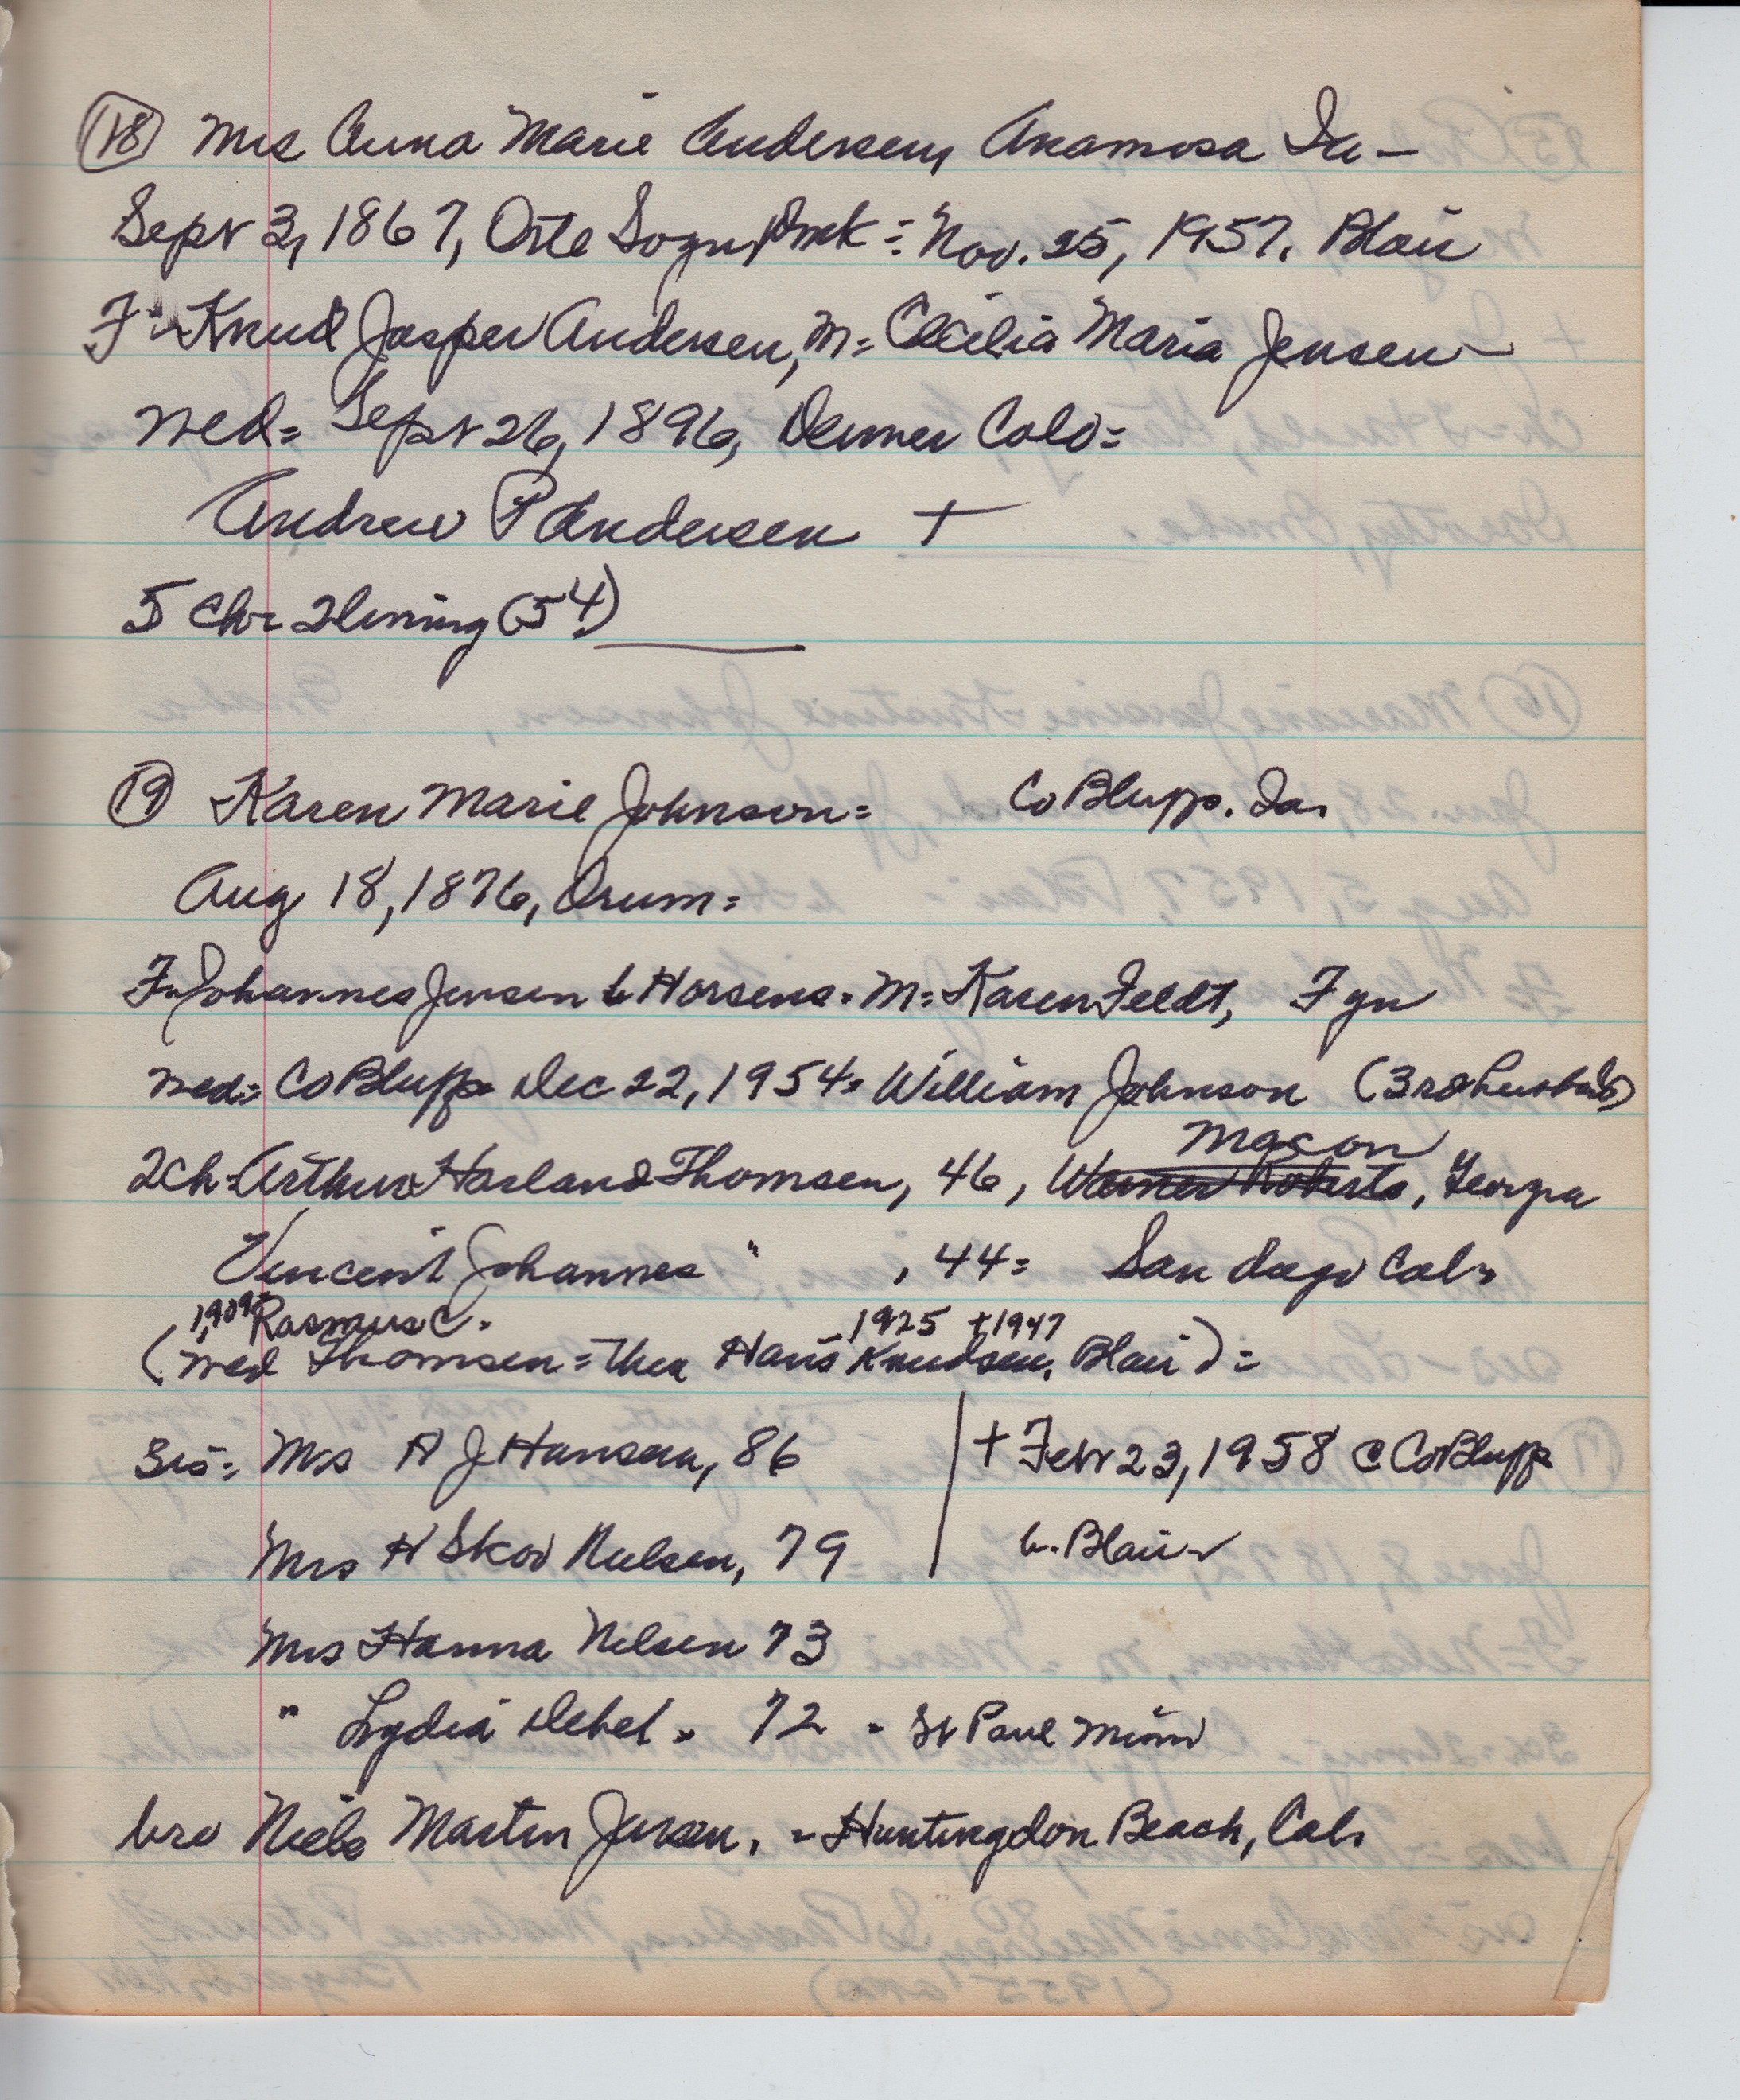 (18) Mrs Anna Marie Andersen, Anamosa Ia -
Sept 3, 1867, Orte Sogn, Dmk = Nov. 25, 1957. Blair
F = Knud Jasper Andersen, M = Cecilia Maria Jensen -
Wed = Sept 26, 1896, Denver Colo =
Andrew P Andersen +
5 Ch = 2 living (54)
(19) Karen Marie Johnson = Co Bluffs. Ia.
Aug 18, 1876, Orum =
F = Johannes Jensen b Horsens. M = Karen Feldt, Fyn
Wed = Co Bluffs Dec 22, 1954 = William Johnson (3rd husband)
Macon
2 ch = Arthur Harland Thomsen, 46, Warner Roberts, Georgia
Vincent Johannes " , 44 = San Diego Cal =
1909 Rasmus C. 1925 +1947
(Wed Thomsen = then Hans Knudsen, Blair) =
Sis = Mrs A J Hansen, 86 + Febr 23, 1958 @ Co Bluffs
Mrs N Skov Nielsen, 79 b. Blair
Mrs Hanna Nelsen 73
" Lydia Debel = 72 = St Paul Minn
bro Niels Martin Jensen. = Huntingdon Beach, Cal.